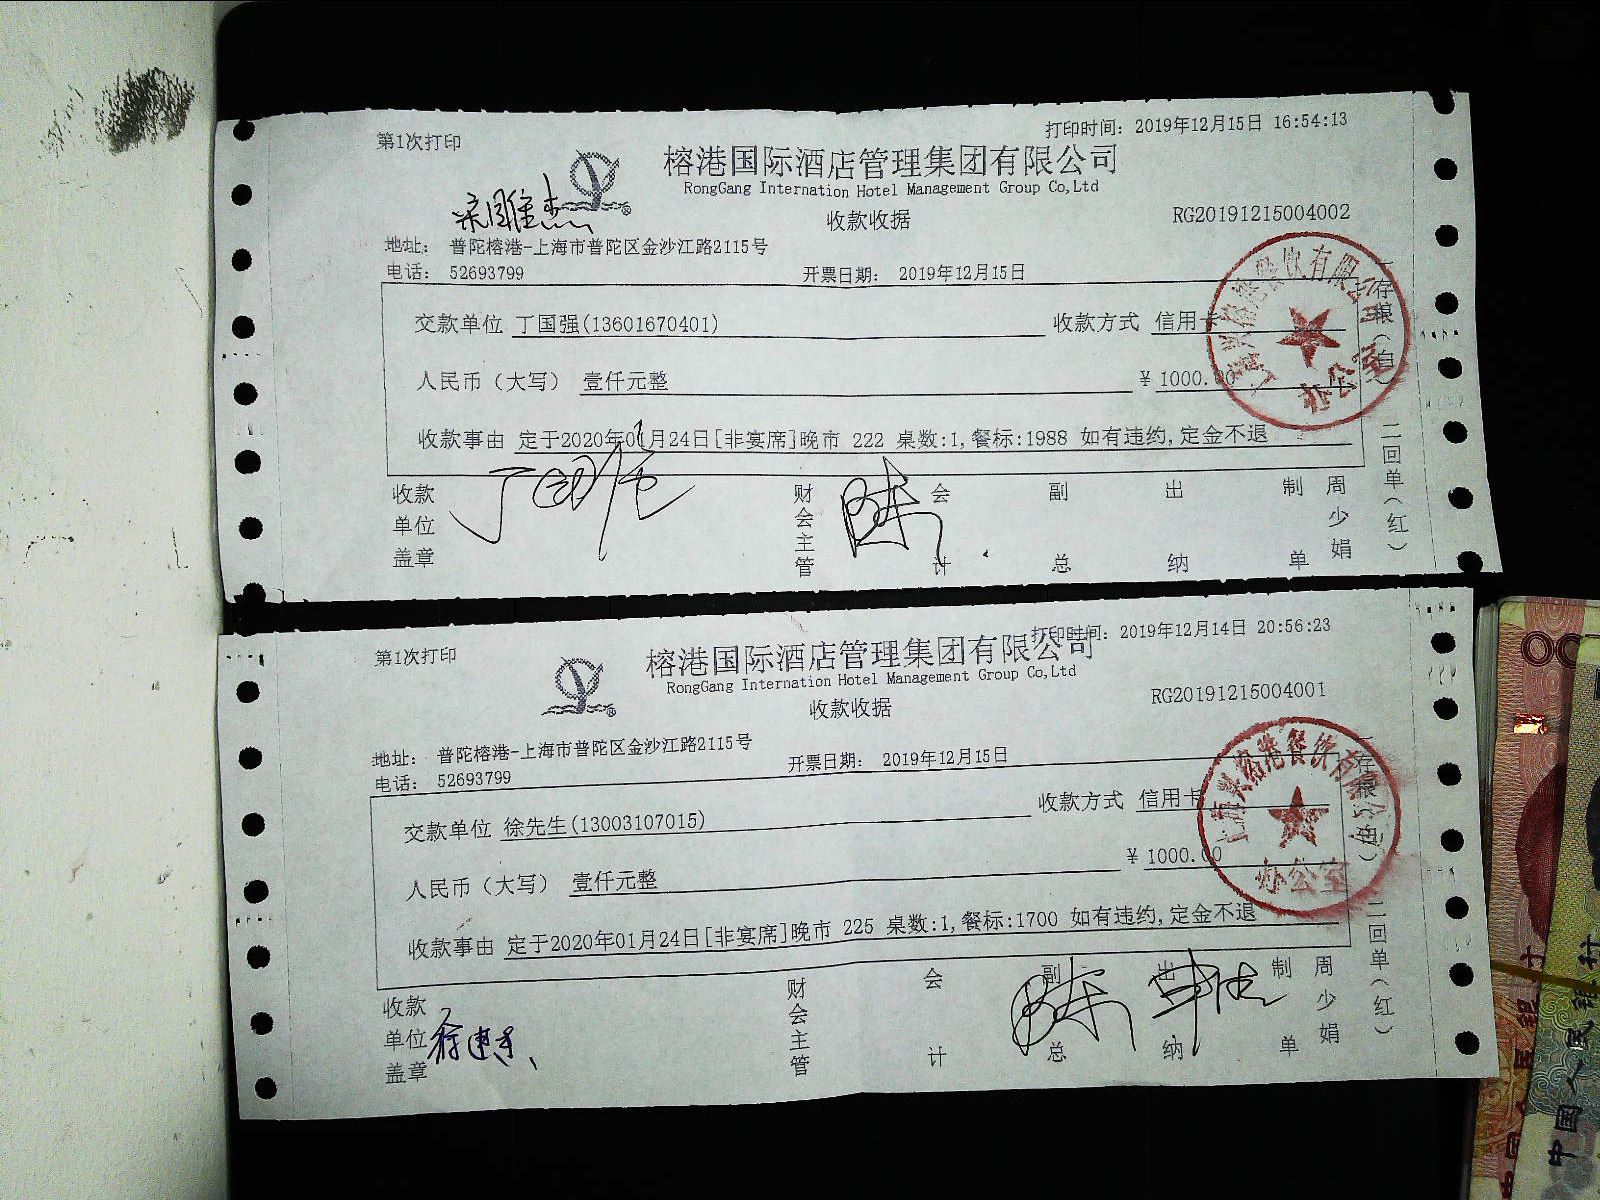 第1次打印
打印时间: 2019年12月15日 16:54:13
榕港国际酒店管理集团有限公司
RongGang Internation Hotel Management Group Co,Ltd
收款收据
RG20191215004002
地址: 普陀榕港-上海市普陀区金沙江路2115号
电话: 52693799
开票日期: 2019年12月15日
交款单位 丁国强(13601670401)
收款方式 信用卡
人民币(大写) 壹仟元整
¥ 1000.00
收款事由 定于2020年01月24日[非宴席]晚市 222 桌数:1,餐标:1988 如有违约,定金不退
收款单位盖章
丁国强
财会主管
陈
会计
副总
出纳
制单
周少娟
二回单(红)
餐饮有限公司
办公室
第1次打印
打印时间: 2019年12月14日 20:56:23
榕港国际酒店管理集团有限公司
RongGang Internation Hotel Management Group Co,Ltd
收款收据
RG20191215004001
地址: 普陀榕港-上海市普陀区金沙江路2115号
电话: 52693799
开票日期: 2019年12月15日
交款单位 徐先生(13003107015)
收款方式 信用卡
人民币(大写) 壹仟元整
¥ 1000.00
收款事由 定于2020年01月24日[非宴席]晚市 225 桌数:1,餐标:1700 如有违约,定金不退
收款单位盖章
财会主管
会计
副总
陈
出纳
制单
周少娟
二回单(红)
港餐饮有限公司
办公室
中国人民银行